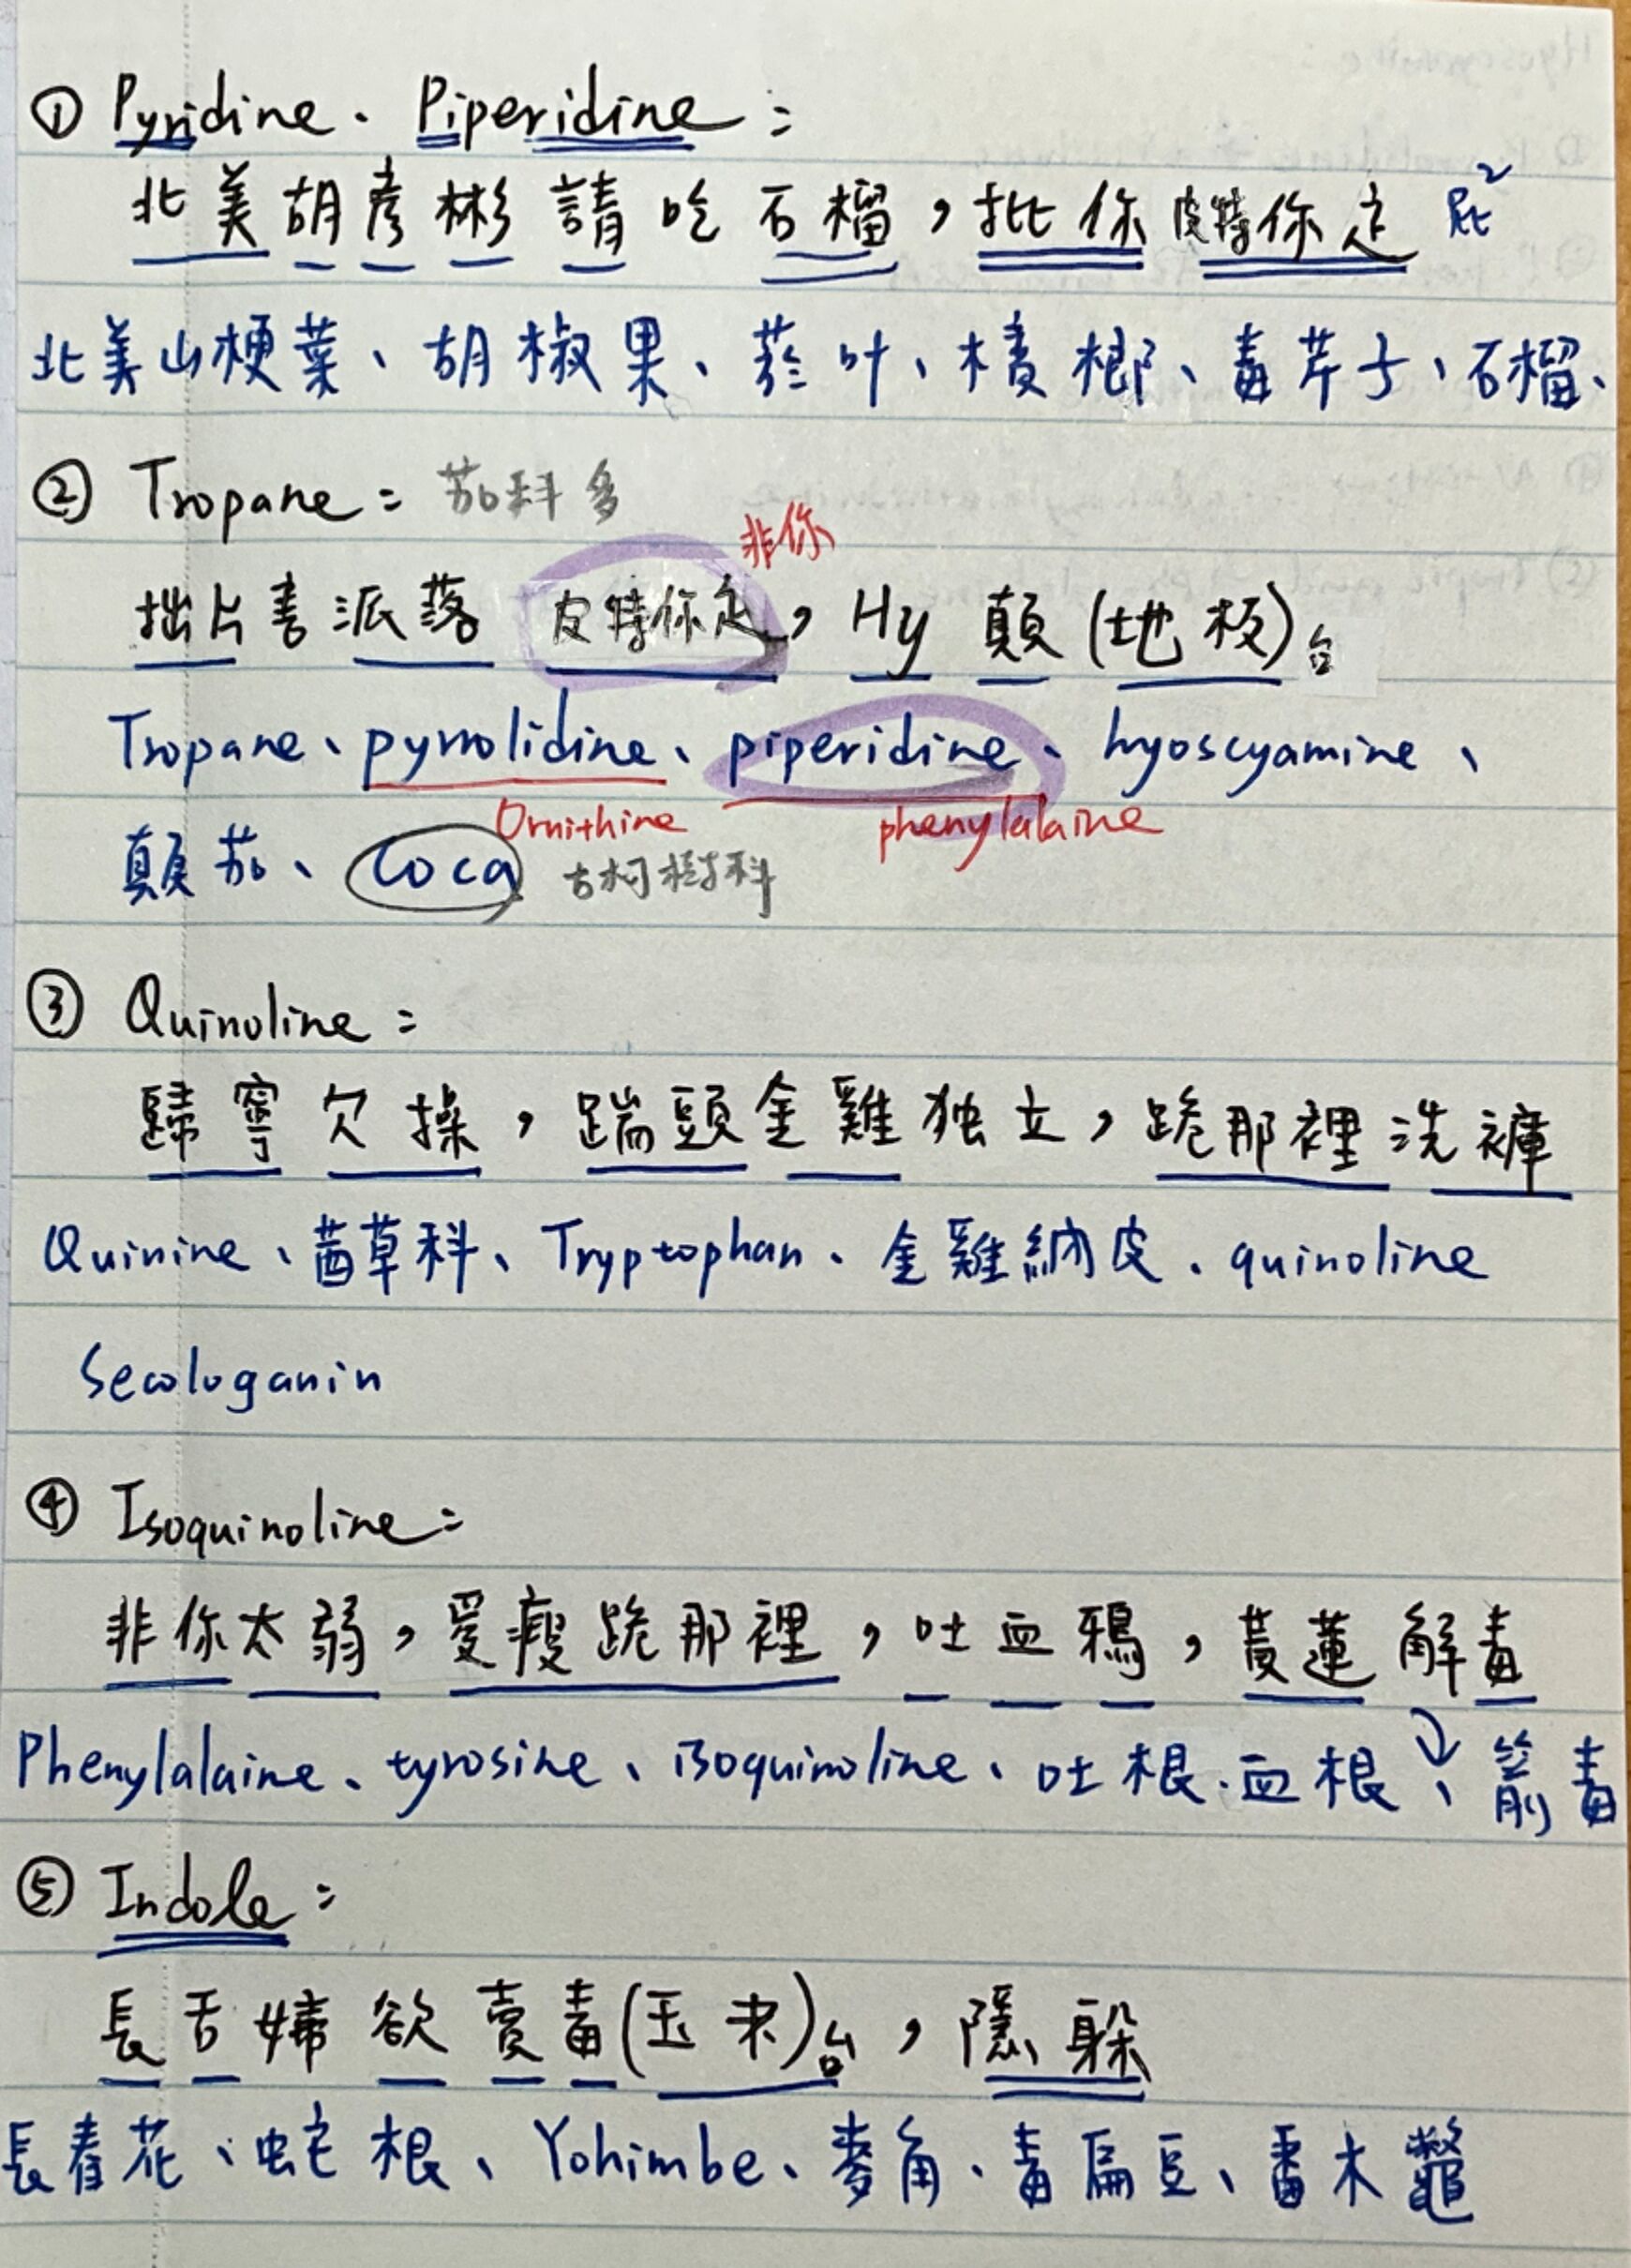 ① Pyridine、Piperidine：
北美胡彥彬請吃石榴，批你皮特你定 屁²
北美山梗葉、胡椒果、菸叶、檳榔、毒芹子、石榴、
② Tropane：茄科多
非你
拙片害派落皮特你定，Hy 顛(地板)台
Tropane、pyrrolidine、piperidine、hyoscyamine、
Ornithine phenylalaine
顛茄、coca 古柯樹科
③ Quinoline：
歸寧欠操，踹頭金雞独立，跪那裡洗褲
Quinine、茜草科、Tryptophan、金雞納皮、quinoline
Secologanin
④ Isoquinoline：
非你太弱，愛瘦跪那裡，吐血鴉，黃蓮解毒
Phenylalaine、tyrosine、isoquinoline、吐根、血根、箭毒
⑤ Indole：
長舌婦欲賣毒(玉米)台，隱躲
長春花、蛇根、Yohimbe、麥角、毒扁豆、番木鱉